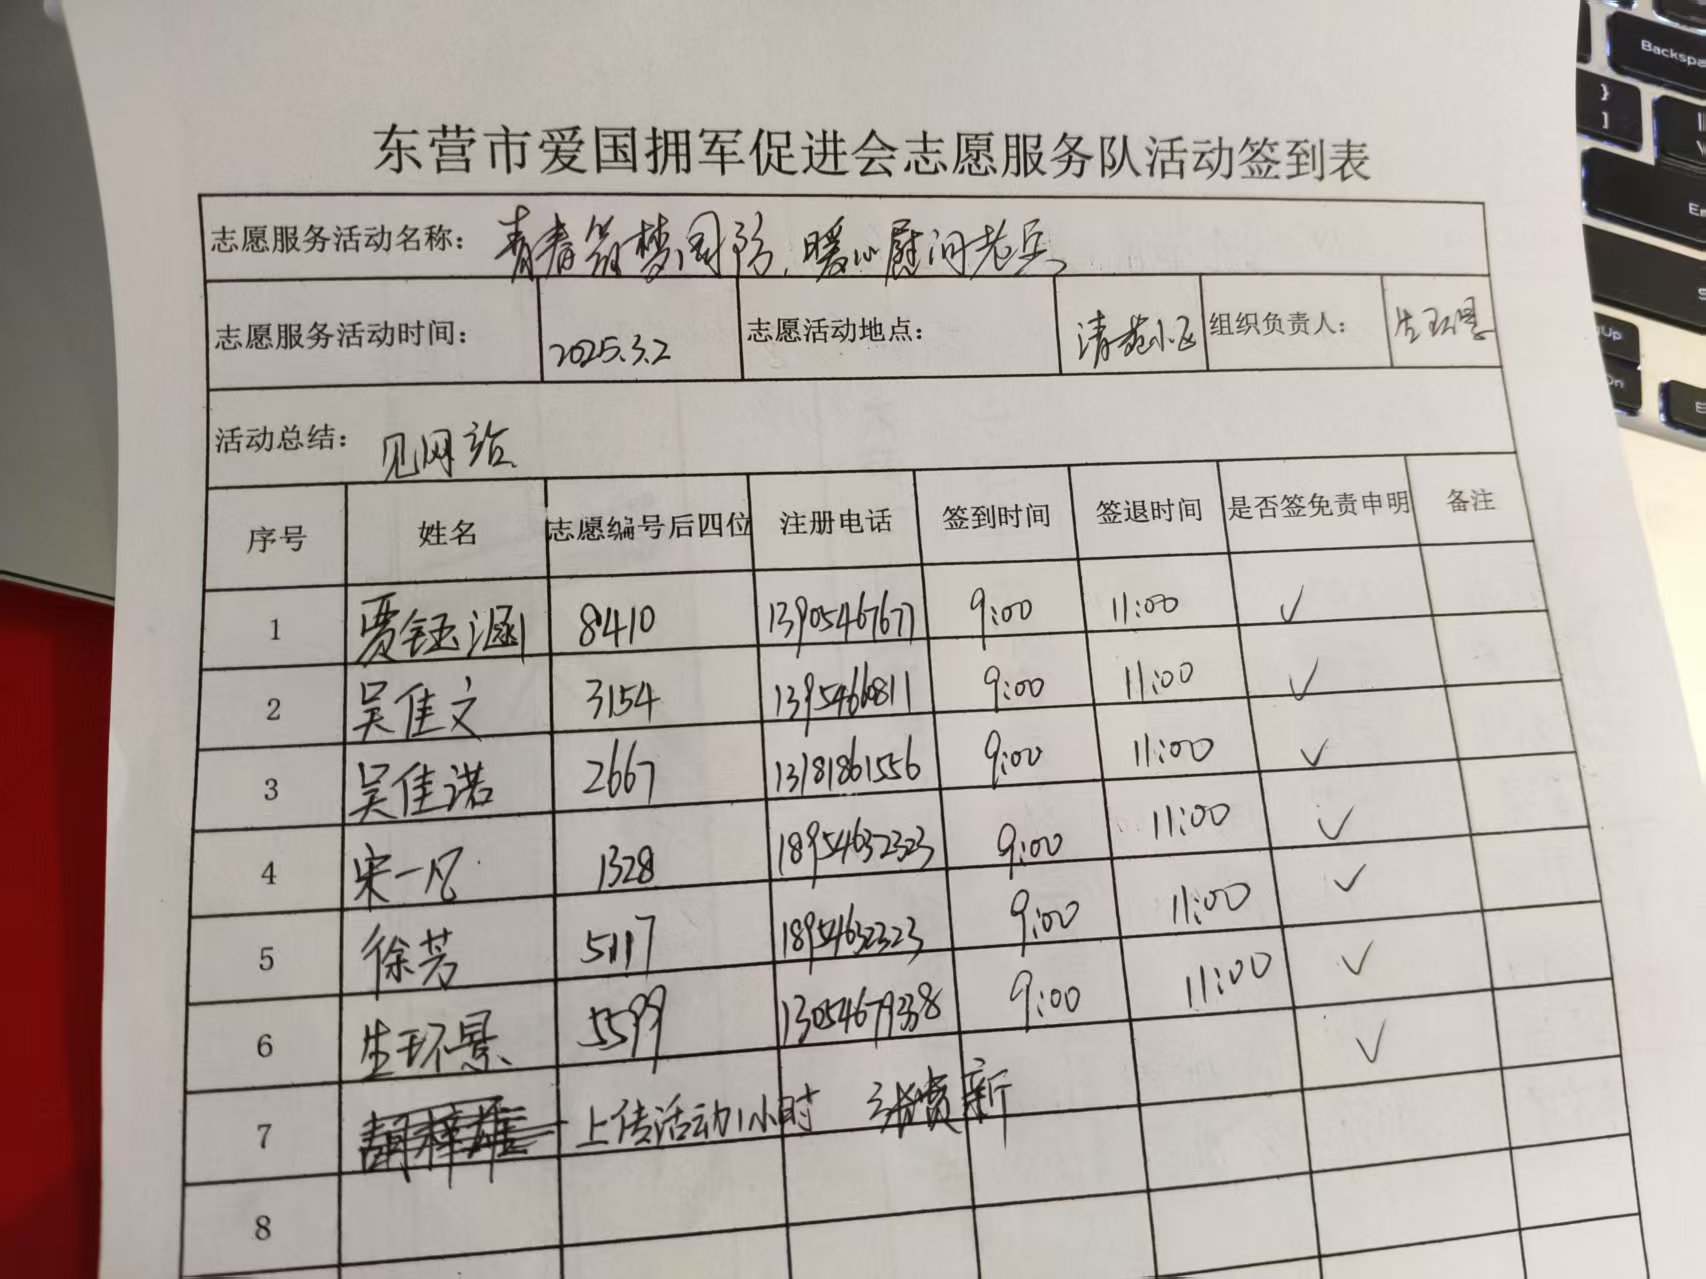 东营市爱国拥军促进会志愿服务队活动签到表
志愿服务活动名称： 青春筑梦国防，暖心慰问老兵
志愿服务活动时间： 2025.3.2 志愿活动地点： 清苑小区 组织负责人： 生环景
活动总结： 见网站
序号 姓名 志愿编号后四位 注册电话 签到时间 签退时间 是否签免责申明 备注
1 贾钰涵 8410 13905467677 9:00 11:00 ✓
2 吴佳文 3154 1395466811 9:00 11:00 ✓
3 吴佳诺 2667 13181861556 9:00 11:00 ✓
4 宋一凡 1328 18954632323 9:00 11:00 ✓
5 徐芳 5117 18954632323 9:00 11:00 ✓
6 生环景 5599 13054679338 9:00 11:00 ✓
7 上传活动1小时 ✓
8
Backspa
}
]